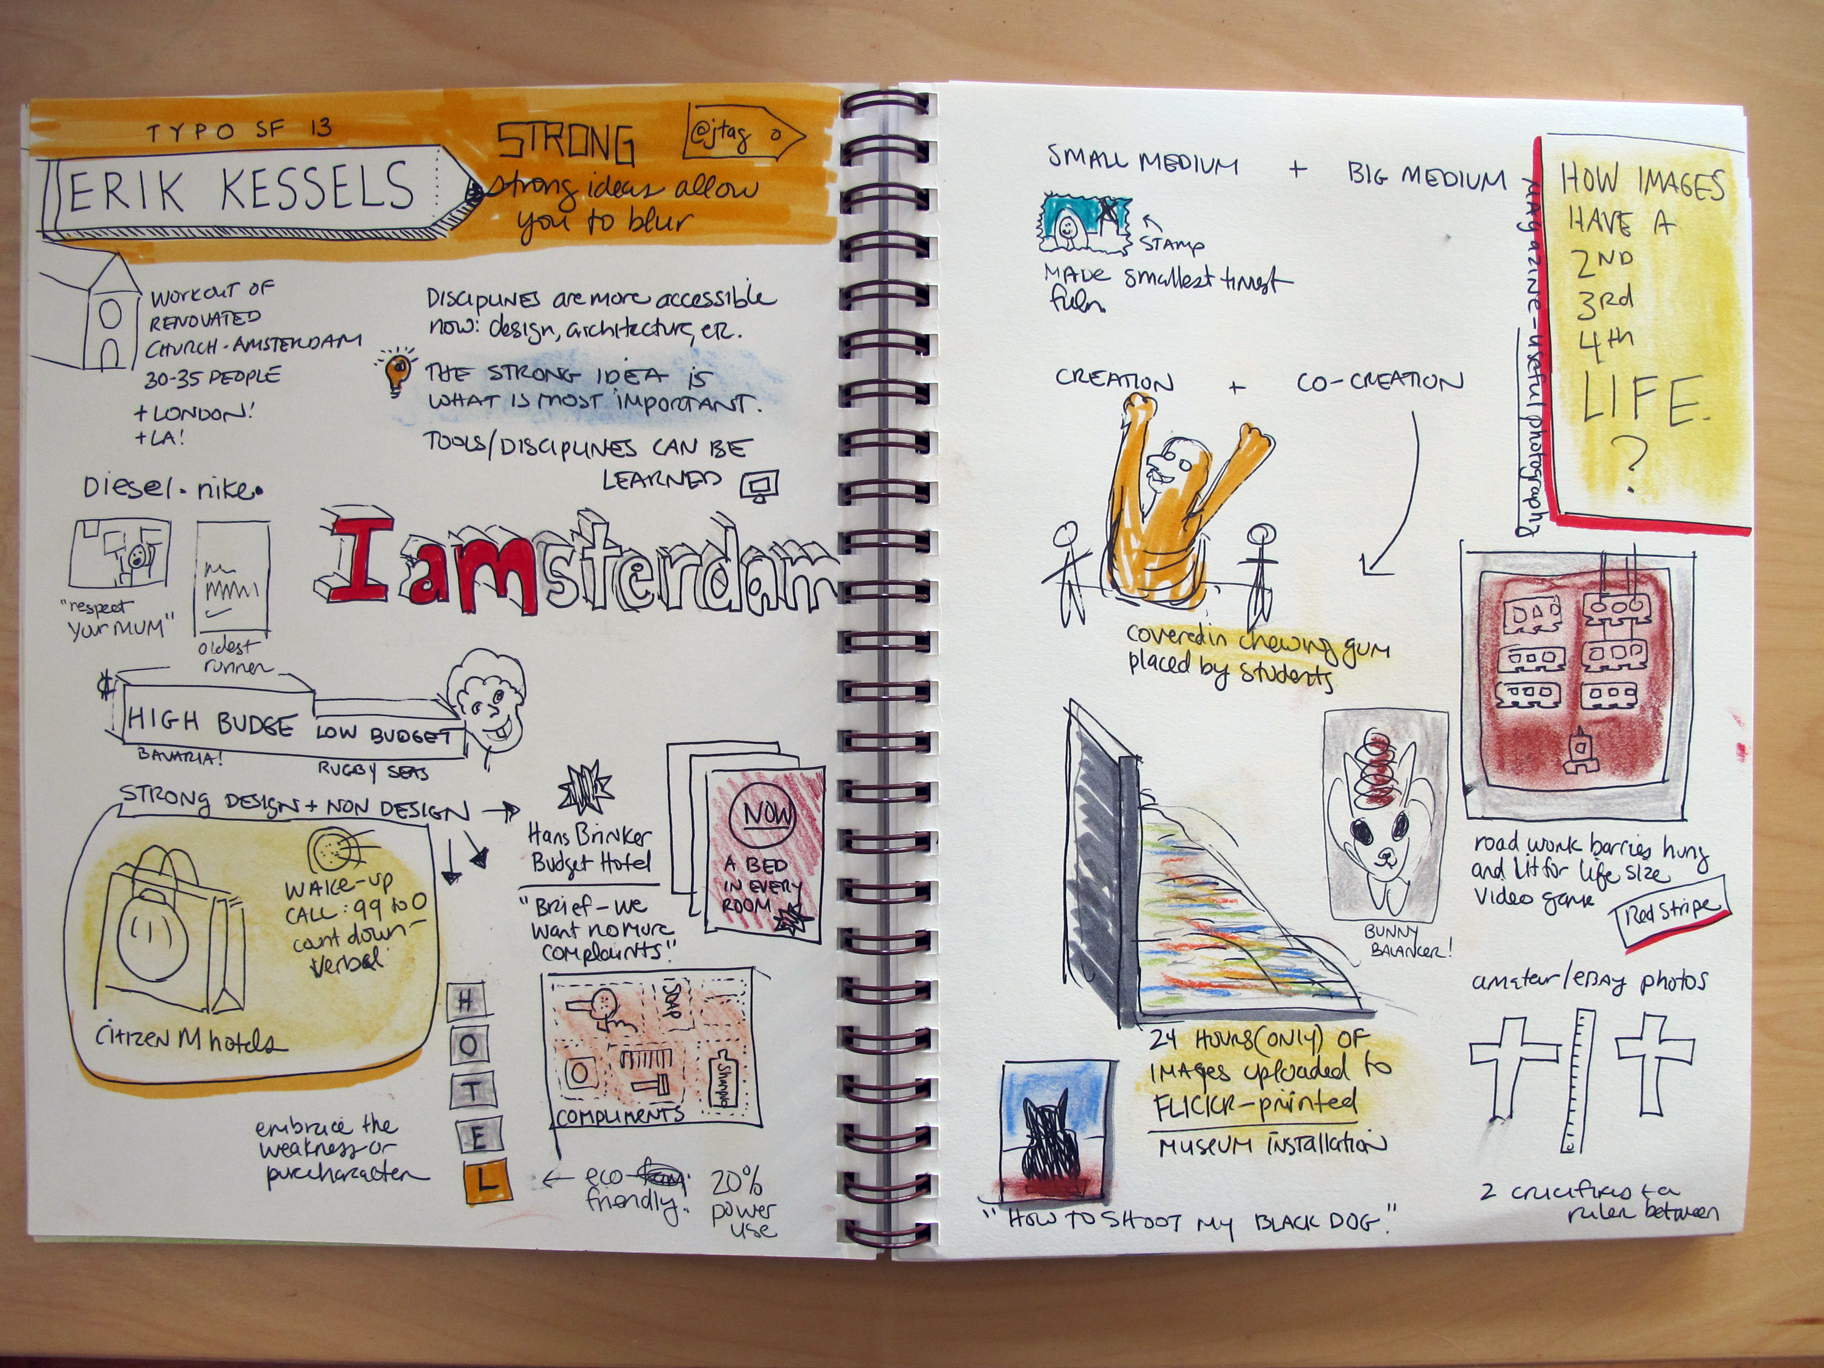 TYPO SF 13
ERIK KESSELS
STRONG
@jtag
strong ideas allow
you to blur
WORK OUT OF
RENOVATED
CHURCH-AMSTERDAM
30-35 PEOPLE
+ LONDON!
+ LA!
DISCIPLINES are more accessible
now: design, architecture, etc.
THE STRONG IDEA is
WHAT IS MOST IMPORTANT.
TOOLS/DISCIPLINES CAN BE
LEARNED
Diesel. nike.
"respect
your MUM"
oldest
runner
I amsterdam
HIGH BUDGE
LOW BUDGET
BAVARIA!
RUGBY SEAS
STRONG DESIGN + NON DESIGN
WAKE-UP
CALL: 99 to 0
count down-
verbal
CITIZEN M hotels
Hans Brinker
Budget Hotel
"Brief-we
want no more
complaints."
NOW
A BED
IN EVERY
ROOM
SOAP
Shampoo
COMPLIMENTS
H
O
T
E
L
embrace the
weakness-or
pure character
← eco-
friendly.
20%
power
use
SMALL MEDIUM + BIG MEDIUM
STAMP
MADE smallest
film.
CREATION + CO-CREATION
covered in chewing gum
placed by students
magazine-useful photography
HOW IMAGES
HAVE A
2ND
3rd
4th
LIFE.
?
road work barries hung
and lit for life size
video game
Red Stripe
BUNNY
BALANCER!
24 HOURS (ONLY) OF
IMAGES uploaded to
FLICKR-printed
MUSEUM INSTALLATION
"HOW TO SHOOT MY BLACK DOG."
amateur/EBAY photos
2 crucifixes + a
ruler between